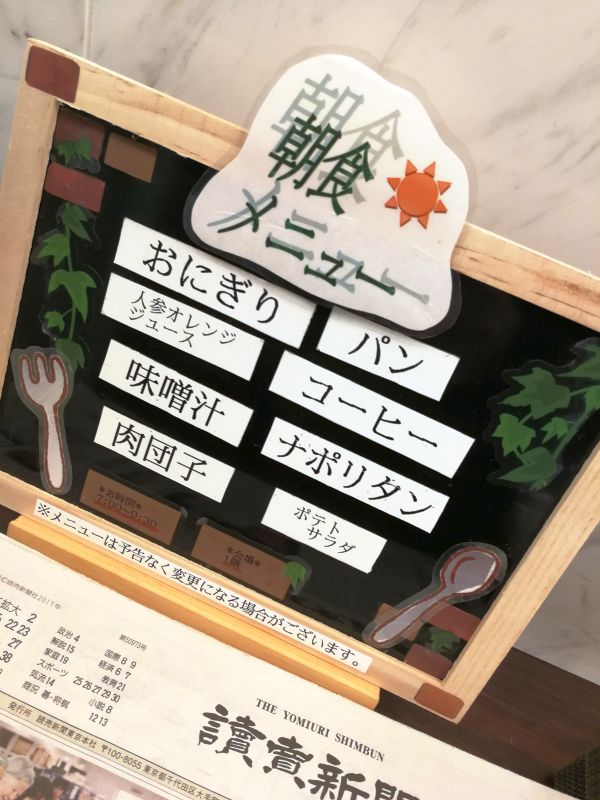 朝食
メニュー
おにぎり
パン
人参オレンジ
ジュース
コーヒー
味噌汁
ナポリタン
肉団子
ポテト
サラダ
*お時間*
7:00~9:30
*会場*
1階
※メニューは予告なく変更になる場合がございます。
読売新聞社2017年
拡大 2
22 23
27
38
政治 4
解説 15
家庭 19
スポーツ 25 26 27 29 30
気流 14
商況 碁・将棋
第50975号
国際 8 9
経済 6 7
教育 21
小説 8
12 13
発行所 読売新聞東京本社 〒100-8055 東京都千代田区大手
THE YOMIURI SHIMBUN
讀賣新聞